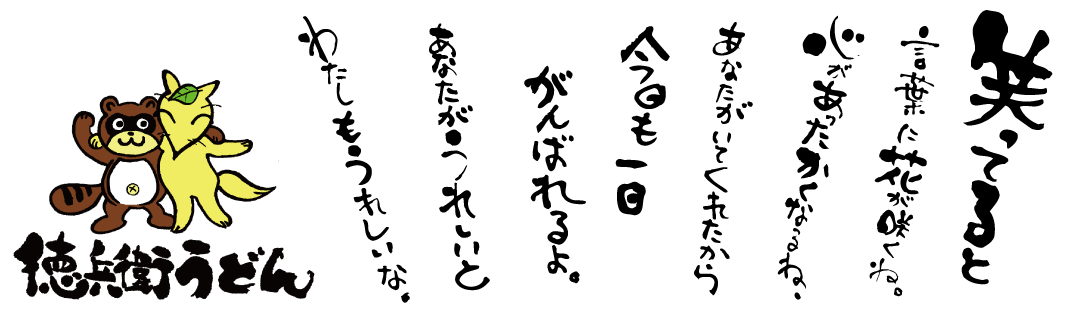 笑ってると
言葉に花が咲くね。
心があったかくなるね、
あなたがいてくれたから
今日も一日
がんばれるよ。
あなたがうれしいと
わたしもうれしいな。
徳兵衛うどん